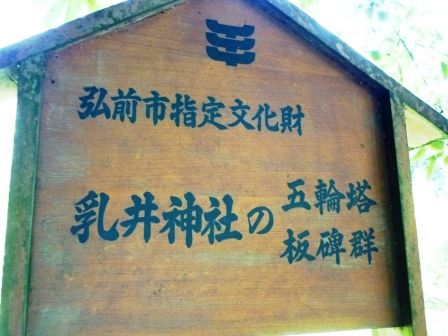 弘前市指定文化財
乳井神社の五輪塔
板碑群